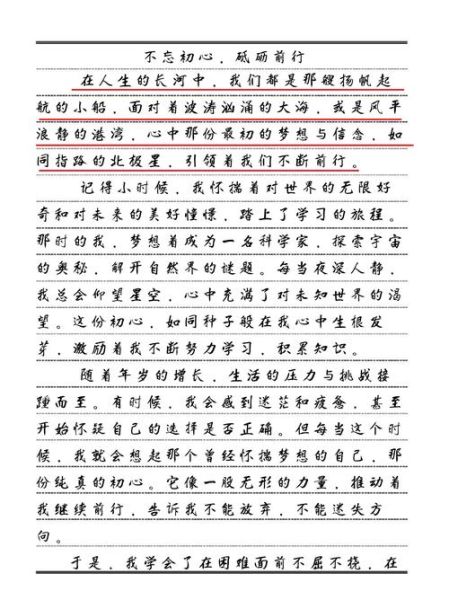 不忘初心，砥砺前行
在人生的长河中，我们都是那艘扬帆起
航的小船，面对着波涛汹涌的大海，或是风平
浪静的港湾，心中那份最初的梦想与信念，如
同指路的北极星，引领着我们不断前行。
记得小时候，我怀揣着对世界的无限好
奇和对未来的美好憧憬，踏上了学习的旅程。
那时的我，梦想着成为一名科学家，探索宇宙
的奥秘，解开自然界的谜题。每当夜深人静，
我总会仰望星空，心中充满了对未知世界的渴
望。这份初心，如同种子般在我心中生根发
芽，激励着我不断努力学习，积累知识。
随着年岁的增长，生活的压力与挑战接
踵而至。有时候，我会感到迷茫和疲惫，甚至
开始怀疑自己的选择是否正确。但每当这个时
候，我就会想起那个曾经怀揣梦想的自己，那
份纯真的初心。它像一股无形的力量，推动着
我继续前行，告诉我不能放弃，不能迷失方
向。
于是，我学会了在困难面前不屈不挠，在